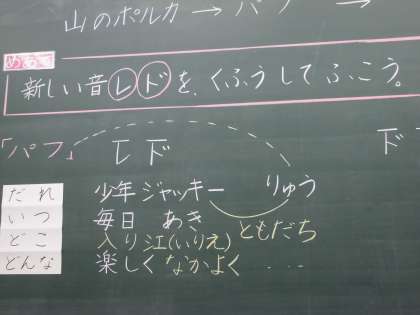 山のポルカ → パフ →
めあて
新しい音レドを、くふうしてふこう。
「パフ」 レド
ド
だれ 少年ジャッキー りゅう
いつ 毎日 あき ともだち
どこ 入り江(いりえ)
どんな 楽しくなかよく ・・・